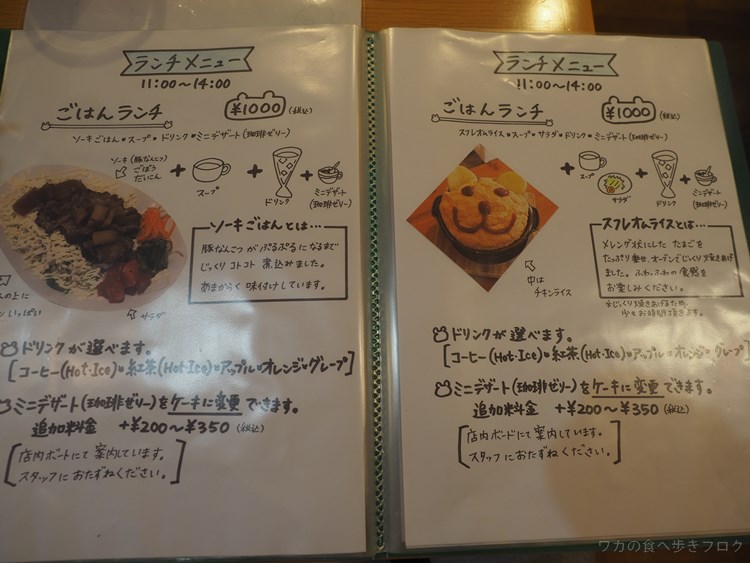 ランチメニュー
11:00〜14:00
ごはんランチ ¥1000 (税込)
ソーキごはん・スープ・ドリンク・ミニデザート(珈琲ゼリー)
ソーキ(豚なんこつ)
ごぼう
だいこん
+ スープ + ドリンク + ミニデザート
(珈琲ゼリー)
ソーキごはんとは…
豚なんこつがぷるぷるになるまで
じっくりコトコト煮込みました。
あまがらく味付けしています。
の上に
いっぱい
サラダ
ドリンクが選べます。
[コーヒー(Hot・Ice)・紅茶(Hot・Ice)・アップル・オレンジ・グレープ]
ミニデザート(珈琲ゼリー)をケーキに変更できます。
追加料金 +¥200〜¥350 (税込)
[店内ボードにて案内しています。
スタッフにおたずねください。]
ランチメニュー
11:00〜14:00
ごはんランチ ¥1000 (税込)
スフレオムライス・スープ・サラダ・ドリンク・ミニデザート(珈琲ゼリー)
+ スープ サラダ + ドリンク + ミニデザート
(珈琲ゼリー)
中は
チキンライス
スフレオムライスとは…
メレンゲ状にした たまごを
たっぷり乗せ、オーブンでじっくり焼きあげ
ました。ふわふわの食感を
お楽しみください。
※じっくり焼きあげるため、
少々お時間頂きます。
ドリンクが選べます。
[コーヒー(Hot・Ice)・紅茶(Hot・Ice)・アップル・オレンジ・グレープ]
ミニデザート(珈琲ゼリー)をケーキに変更できます。
追加料金 +¥200〜¥350 (税込)
[店内ボードにて案内しています。
スタッフにおたずねください。]
ワカの食べ歩きブログ